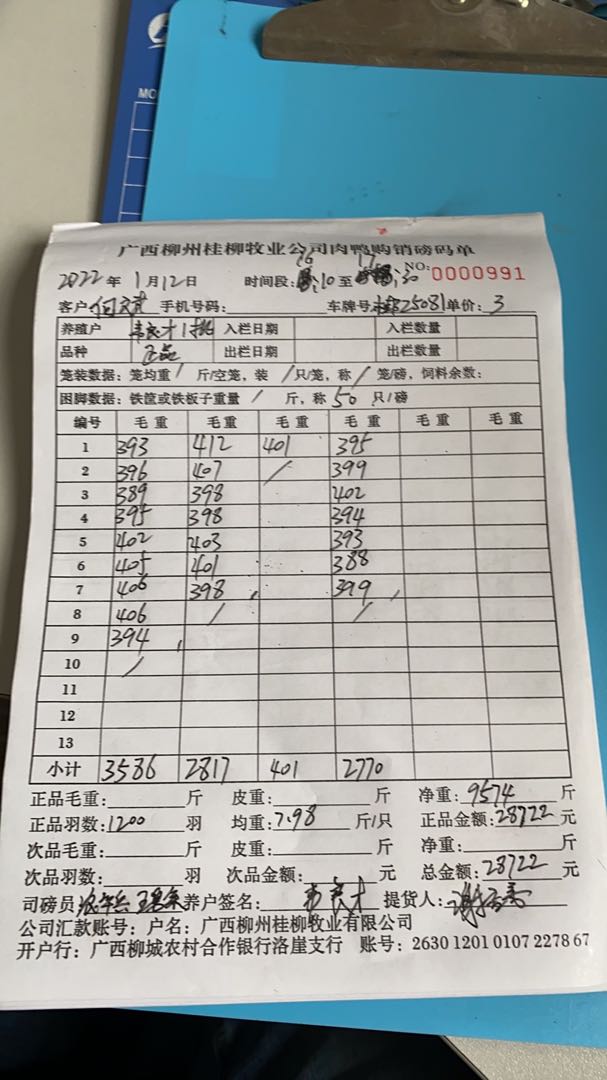 MO
广西柳州桂柳牧业公司肉鸭购销磅码单
2022年 1月12日 时间段: 16:10至17: NO:0000991
客户 手机号码: 车牌号 25081 单价: 3
养殖户 韦良才 入栏日期 入栏数量
品种 正品 出栏日期 出栏数量
笼装数据: 笼均重 / 斤/空笼, 装 / 只/笼, 称 / 笼/磅, 饲料余数:
困脚数据: 铁筐或铁板子重量 / 斤, 称 50 只/磅
编号 毛重 毛重 毛重 毛重 毛重 毛重
1 393 412 401 395
2 396 407 / 399
3 389 398 402
4 395 398 394
5 402 403 393
6 405 401 388
7 406 398 399
8 406 / /
9 394
10 /
11
12
13
小计 3586 2817 401 2770
正品毛重: 斤 皮重: 斤 净重: 9574 斤
正品羽数: 1200 羽 均重: 7.98 斤/只 正品金额: 28722 元
次品毛重: 斤 皮重: 斤 净重: 斤
次品羽数: 羽 次品金额: 元 总金额: 28722 元
司磅员 养户签名: 韦良才 提货人:
公司汇款账号: 户名: 广西柳州桂柳牧业有限公司
开户行: 广西柳城农村合作银行洛崖支行 账号: 2630 1201 0107 2278 67